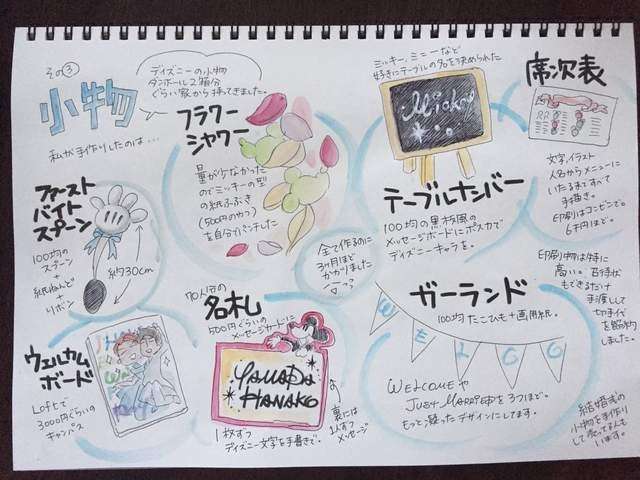 その③
小物
私が手作りしたのは…
ディズニーの小物
ダンボール2箱分
ぐらい家から持ってきました。
フラワー
シャワー
量が少なかった
のでミッキーの型
の紙ふぶき
(500円のやつ)
を自分でパンチした
ミッキー、ミニーなど
好きにテーブルの名を決められた
Mickey
テーブルナンバー
100均の黒板風の
メッセージボードにポスカで
ディズニーキャラを。
席次表
文字、イラスト
人名からメニューに
いたるまですべて
手描き。
印刷はコンビニで。
6千円ほど。
印刷物は特に
高い。招待状
もできるだけ
手渡しして
切手代
を節約
しました。
ファースト
バイト
スプーン
100均の
スプーン
+
紙ねんど
+
リボン
約30cm
全て作るのに
3ヶ月ほど
かかりました
70人分の
名札
500円ぐらいの
メッセージカードに
YAMADA
HANAKO
1枚ずつ
ディズニー文字を手書きで。
裏には
1人ずつ
メッセージ
ウェルカム
ボード
Loftで
3000円ぐらいの
キャンバス
ガーランド
100均たこひも+画用紙。
WELCO
WELCOMEや
JUST MARRIEDを3つほど。
もっと凝ったデザインにしてます。
結婚式の
小物を手作り
して売ってる人も
います。